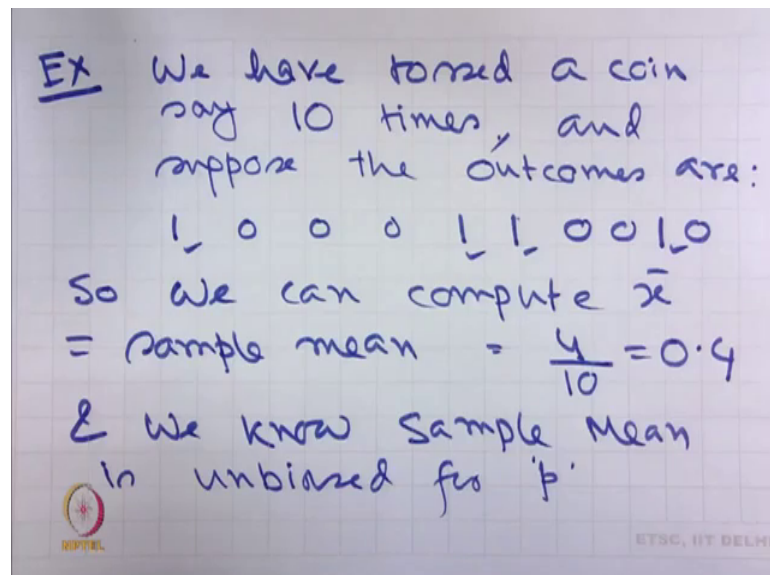 Ex We have tossed a coin
say 10 times, and
suppose the outcomes are:
1 0 0 0 1 1 0 0 1 0
So we can compute x̄
= sample mean = 4/10 = 0.4
& we know sample Mean
is unbiased for 'p'
NPTEL
ETSC, IIT DELHI